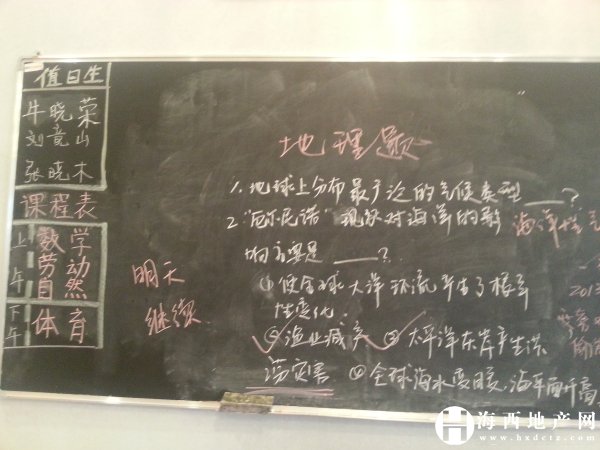 值日生
牛晓荣
刘竟山
张晓木
课程表
上午
数学
劳动
自然
下午
体育
明天
继续
地理题
1. 地球上分布最广泛的气候类型 ____?
2. "厄尔尼诺"现象对海洋的影
响主要是 ____?
① 使全球大洋环流产生了根本
性变化.
② 渔业减产 ③ 太平洋东岸产生洪
涝灾害 ④ 全球海水变暖,海平面升高
海洋性气
2013
海西地产网
www.hxdctz.com